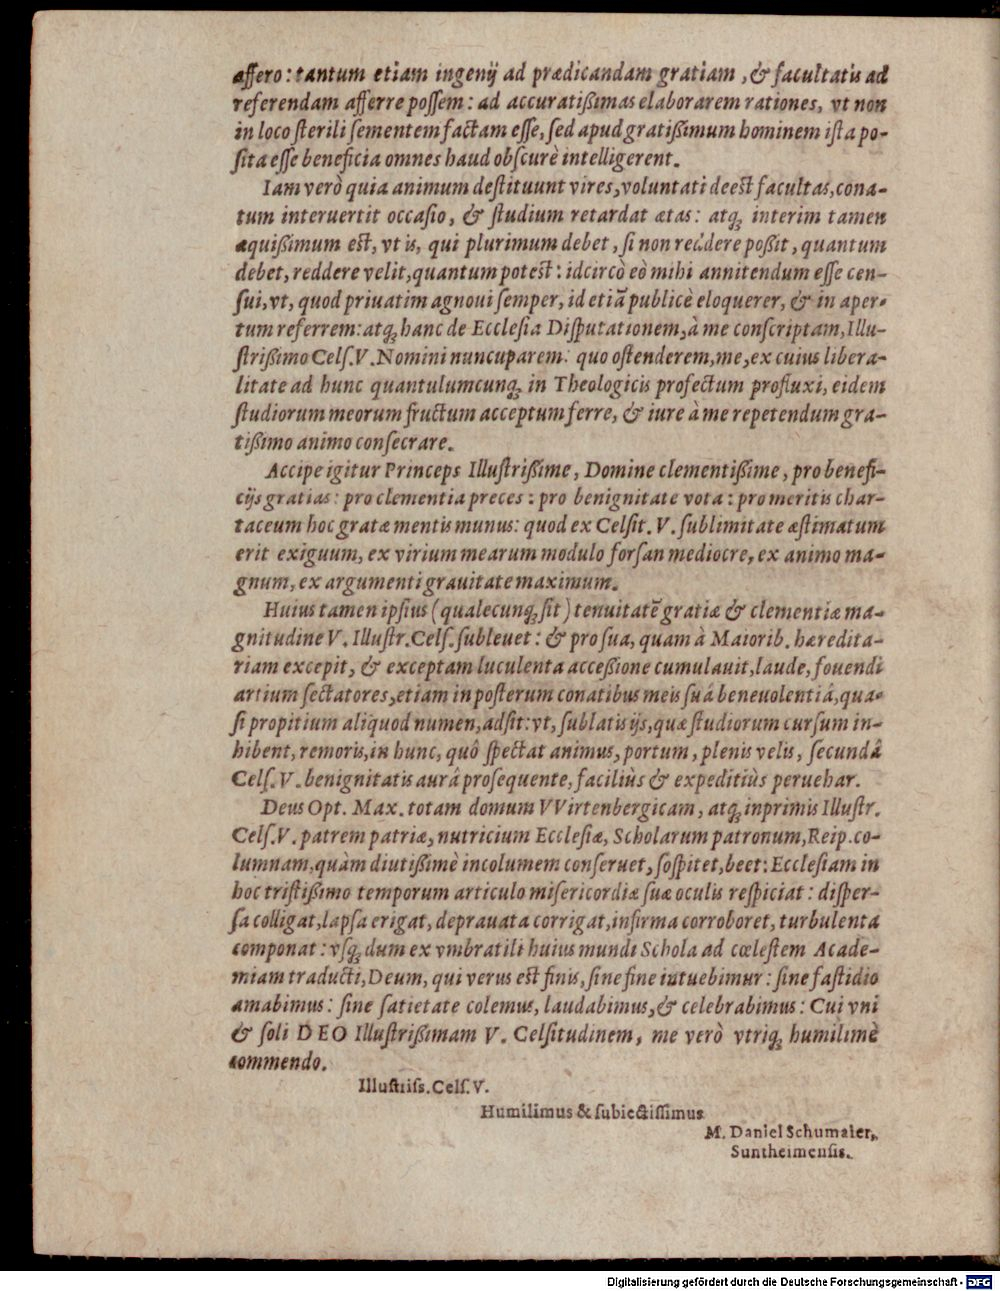 affero: tantum etiam ingenij ad prædicandam gratiam, & facultatis ad
referendam afferre possem: ad accuratißimas elaborarem rationes, vt non
in loco sterili sementem factam esse, sed apud gratißimum hominem ista po-
sita esse beneficia omnes haud obscurè intelligerent.
Iam verò quia animum destituunt vires, voluntati deest facultas, cona-
tum interuertit occasio, & studium retardat ætas: atq; interim tamen
æquißimum est, vt is, qui plurimum debet, si non reddere poßit, quantum
debet, reddere velit, quantum potest: idcircò eò mihi annitendum esse cen-
sui, vt, quod priuatim agnoui semper, id etiã publicè eloquerer, & in aper-
tum referrem: atq; hanc de Ecclesia Disputationem, à me conscriptam, Illu-
strißimo Cels. V. Nomini nuncuparem: quo ostenderem, me, ex cuius libera-
litate ad hunc quantulumcunq; in Theologicis profectum profluxi, eidem
studiorum meorum fructum acceptum ferre, & iure à me repetendum gra-
tißimo animo consecrare.
Accipe igitur Princeps Illustrißime, Domine clementißime, pro benefi-
cijs gratias: pro clementia preces: pro benignitate vota: pro meritis char-
taceum hoc gratæ mentis munus: quod ex Celsit. V. sublimitate æstimatum
erit exiguum, ex virium mearum modulo forsan mediocre, ex animo ma-
gnum, ex argumenti grauitate maximum.
Huius tamen ipsius (qualecunq; sit) tenuitatẽ gratiæ & clementiæ ma-
gnitudine V. Illustr. Cels. subleuet: & pro sua, quam à Maiorib. hæredita-
riam excepit, & exceptam luculenta acceßione cumulauit, laude, fouendi
artium sectatores, etiam in posterum conatibus meis suâ beneuolentiâ, qua-
si propitium aliquod numen, adsit: vt, sublatis ijs, quæ studiorum cursum in-
hibent, remoris, in hunc, quô spectat animus, portum, plenis velis, secundâ
Cels. V. benignitatis aurâ prosequente, faciliùs & expeditiùs peruehar.
Deus Opt. Max. totam domum VVirtenbergicam, atq; inprimis Illustr.
Cels. V. patrem patriæ, nutricium Ecclesiæ, Scholarum patronum, Reip. co-
lumnam, quàm diutißimè incolumem conseruet, sospitet, beet: Ecclesiam in
hoc tristißimo temporum articulo misericordiæ suæ oculis respiciat: disper-
sa colligat, lapsa erigat, deprauata corrigat, infirma corroboret, turbulenta
componat: vsq; dum ex vmbratili huius mundi Schola ad cœlestem Acade-
miam traducti, Deum, qui verus est finis, sine fine intuebimur: sine fastidio
amabimus: sine satietate colemus, laudabimus, & celebrabimus: Cui vni
& soli DEO Illustrißimam V. Celsitudinem, me verò vtriq; humilimè
commendo.
Illustriss. Cels. V.
Humilimus & subiectissimus
M. Daniel Schumaier,
Suntheimensis.
Digitalisierung gefördert durch die Deutsche Forschungsgemeinschaft - DFG